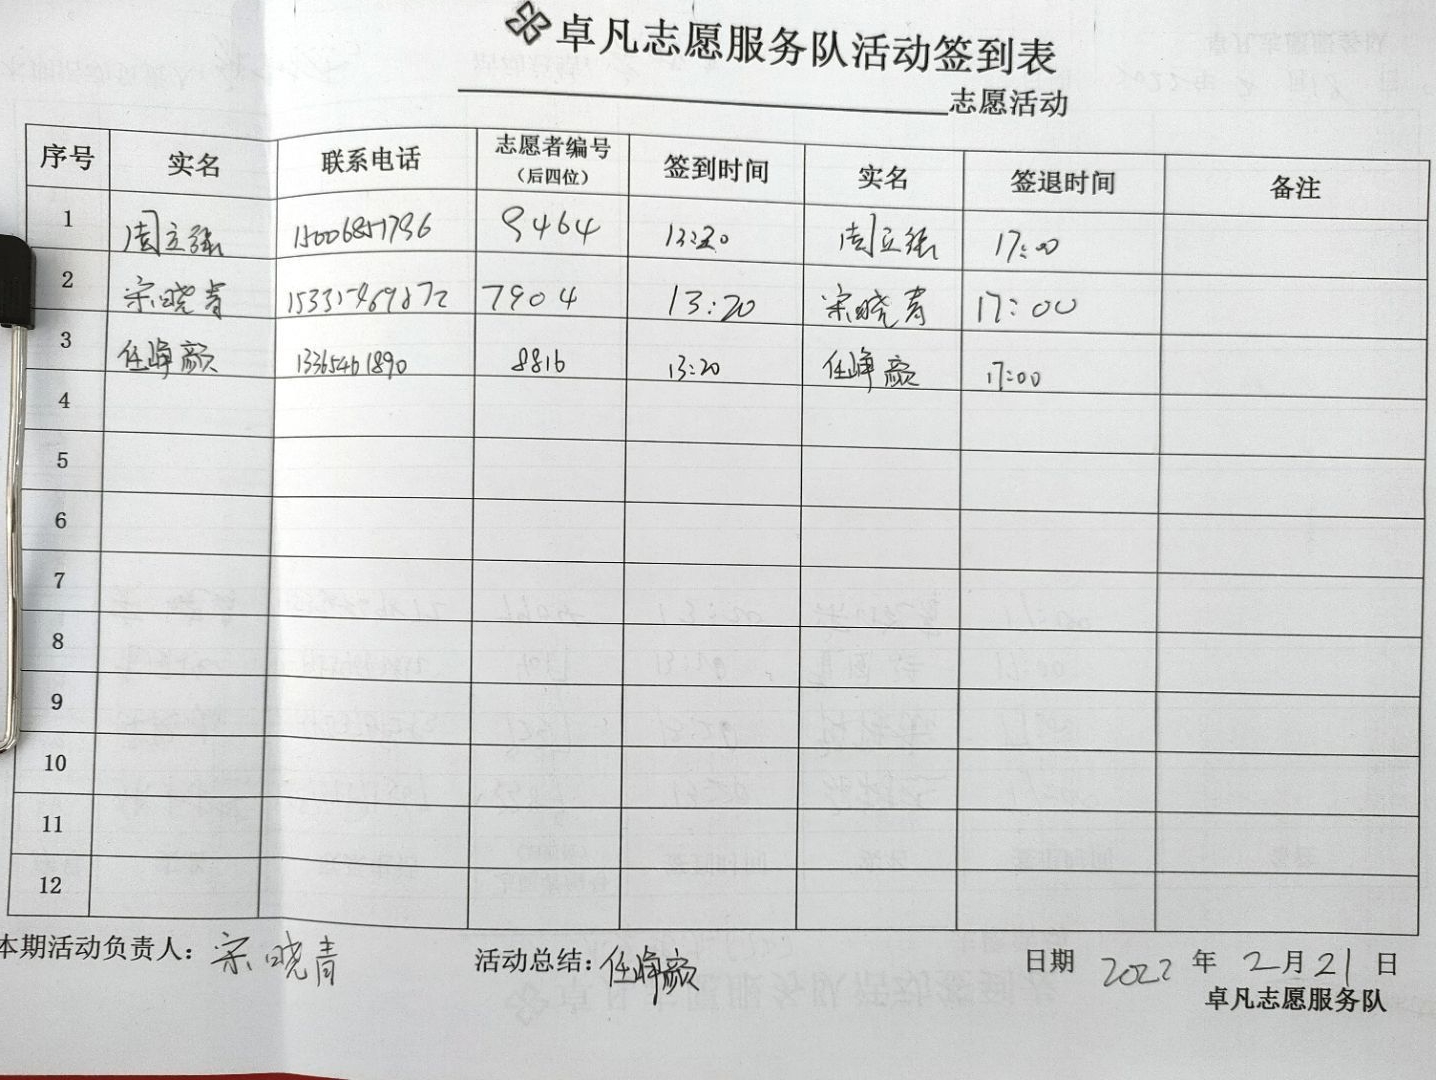 卓凡志愿服务队活动签到表
志愿活动
序号 实名 联系电话 志愿者编号（后四位） 签到时间 实名 签退时间 备注
1 周立强 15006851796 9464 13:20 周立强 17:00
2 宋晓青 7904 13:20 宋晓青 17:00
3 任峥颜 13365461890 8816 13:20 任峥颜 17:00
4
5
6
7
8
9
10
11
12
本期活动负责人：宋晓青 活动总结：任峥颜 日期 2022 年 2 月 21 日
卓凡志愿服务队